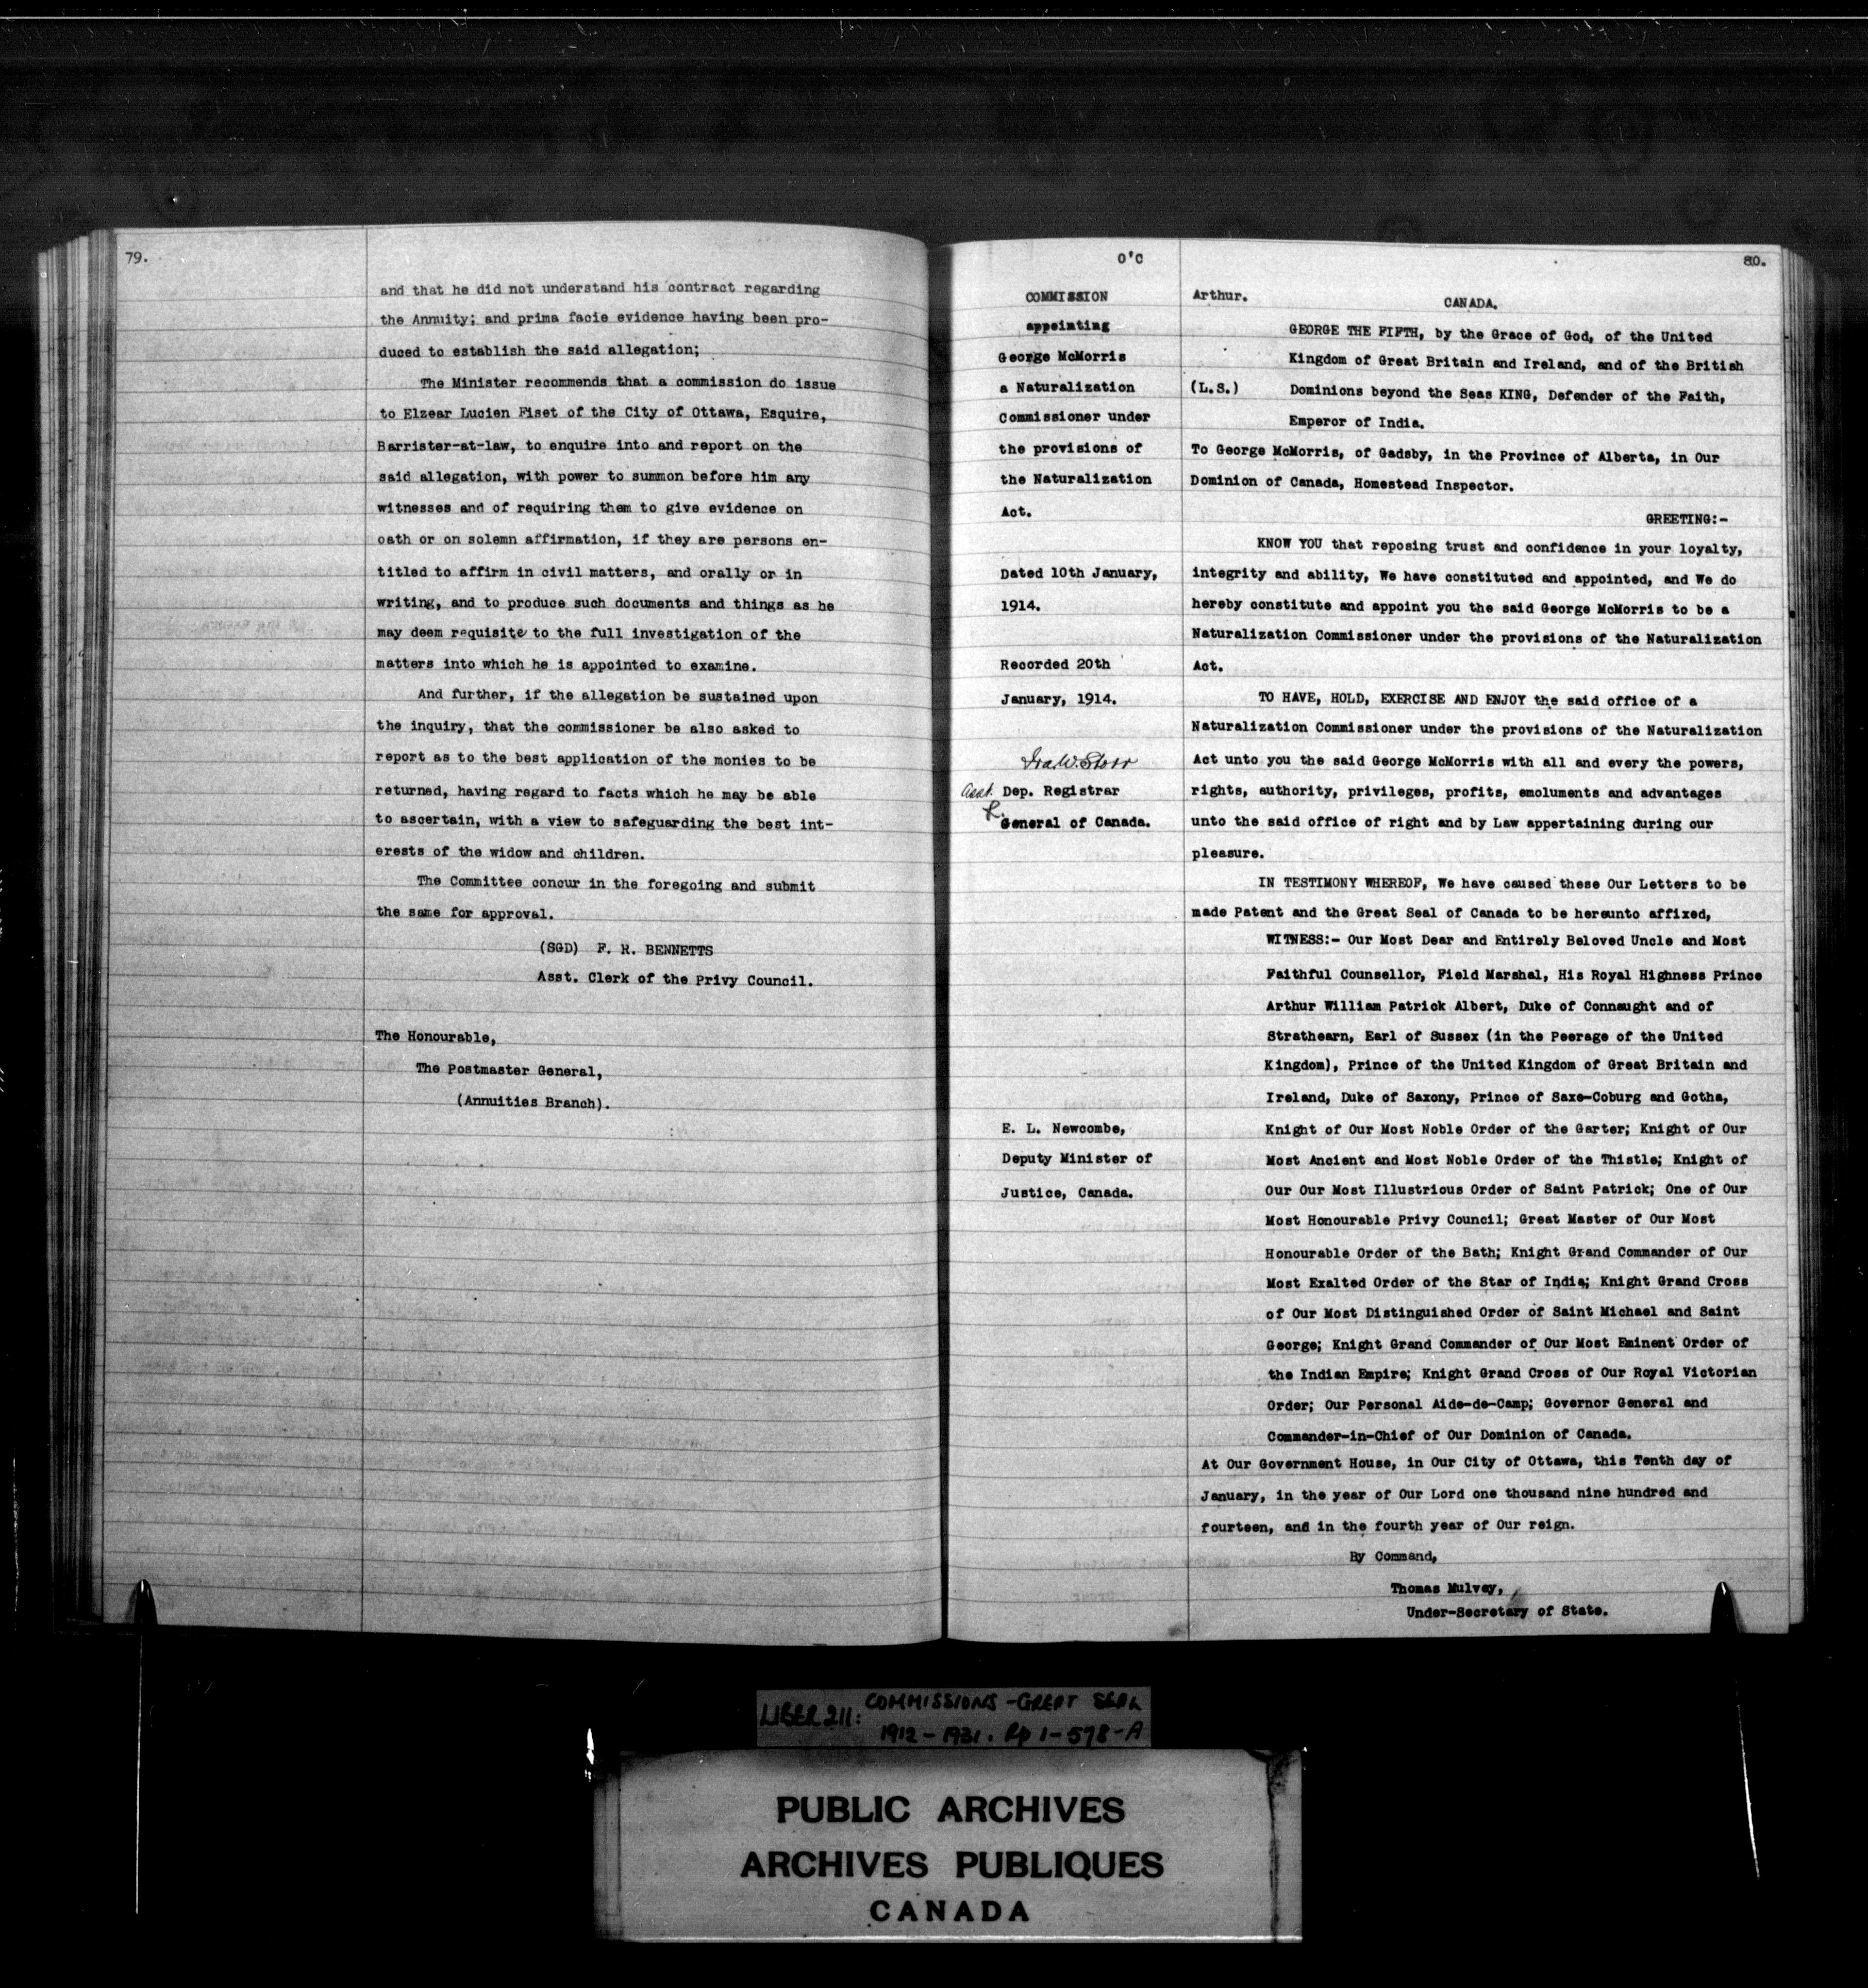 79.
and that he did not understand his contract regarding
the Annuity; and prima facie evidence having been pro-
duced to establish the said allegation;
The Minister recommends that a commission do issue
to Elzear Lucien Fiset of the City of Ottawa, Esquire,
Barrister-at-law, to enquire into and report on the
said allegation, with power to summon before him any
witnesses and of requiring them to give evidence on
oath or on solemn affirmation, if they are persons en-
titled to affirm in civil matters, and orally or in
writing, and to produce such documents and things as he
may deem requisite to the full investigation of the
matters into which he is appointed to examine.
And further, if the allegation be sustained upon
the inquiry, that the commissioner be also asked to
report as to the best application of the monies to be
returned, having regard to facts which he may be able
to ascertain, with a view to safeguarding the best int-
erests of the widow and children.
The Committee concur in the foregoing and submit
the same for approval.
(SGD) F. R. BENNETTS
Asst. Clerk of the Privy Council.
The Honourable,
The Postmaster General,
(Annuities Branch).
O'C
80.
COMMISSION
appointing
George McMorris
a Naturalization
Commissioner under
the provisions of
the Naturalization
Act.
Dated 10th January,
1914.
Recorded 20th
January, 1914.
Ira W. Storr
Asst. Dep. Registrar
General of Canada.
E. L. Newcombe,
Deputy Minister of
Justice, Canada.
Arthur.
CANADA.
GEORGE THE FIFTH, by the Grace of God, of the United
Kingdom of Great Britain and Ireland, and of the British
(L.S.) Dominions beyond the Seas KING, Defender of the Faith,
Emperor of India.
To George McMorris, of Gadsby, in the Province of Alberta, in Our
Dominion of Canada, Homestead Inspector.
GREETING:-
KNOW YOU that reposing trust and confidence in your loyalty,
integrity and ability, We have constituted and appointed, and We do
hereby constitute and appoint you the said George McMorris to be a
Naturalization Commissioner under the provisions of the Naturalization
Act.
TO HAVE, HOLD, EXERCISE AND ENJOY the said office of a
Naturalization Commissioner under the provisions of the Naturalization
Act unto you the said George McMorris with all and every the powers,
rights, authority, privileges, profits, emoluments and advantages
unto the said office of right and by Law appertaining during our
pleasure.
IN TESTIMONY WHEREOF, We have caused these Our Letters to be
made Patent and the Great Seal of Canada to be hereunto affixed,
WITNESS:- Our Most Dear and Entirely Beloved Uncle and Most
Faithful Counsellor, Field Marshal, His Royal Highness Prince
Arthur William Patrick Albert, Duke of Connaught and of
Strathearn, Earl of Sussex (in the Peerage of the United
Kingdom), Prince of the United Kingdom of Great Britain and
Ireland, Duke of Saxony, Prince of Saxe-Coburg and Gotha,
Knight of Our Most Noble Order of the Garter; Knight of Our
Most Ancient and Most Noble Order of the Thistle; Knight of
Our Our Most Illustrious Order of Saint Patrick; One of Our
Most Honourable Privy Council; Great Master of Our Most
Honourable Order of the Bath; Knight Grand Commander of Our
Most Exalted Order of the Star of India; Knight Grand Cross
of Our Most Distinguished Order of Saint Michael and Saint
George; Knight Grand Commander of Our Most Eminent Order of
the Indian Empire; Knight Grand Cross of Our Royal Victorian
Order; Our Personal Aide-de-Camp; Governor General and
Commander-in-Chief of Our Dominion of Canada.
At Our Government House, in Our City of Ottawa, this Tenth day of
January, in the year of Our Lord one thousand nine hundred and
fourteen, and in the fourth year of Our reign.
By Command,
Thomas Mulvey,
Under-Secretary of State.
LIBER 211: COMMISSIONS - GREAT SEAL
1912 - 1931. Pp 1-578-A
PUBLIC ARCHIVES
ARCHIVES PUBLIQUES
CANADA